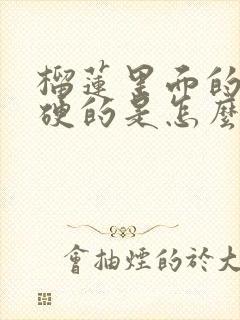 榴蓮里面的
硬的是怎麼
會抽煙的於大